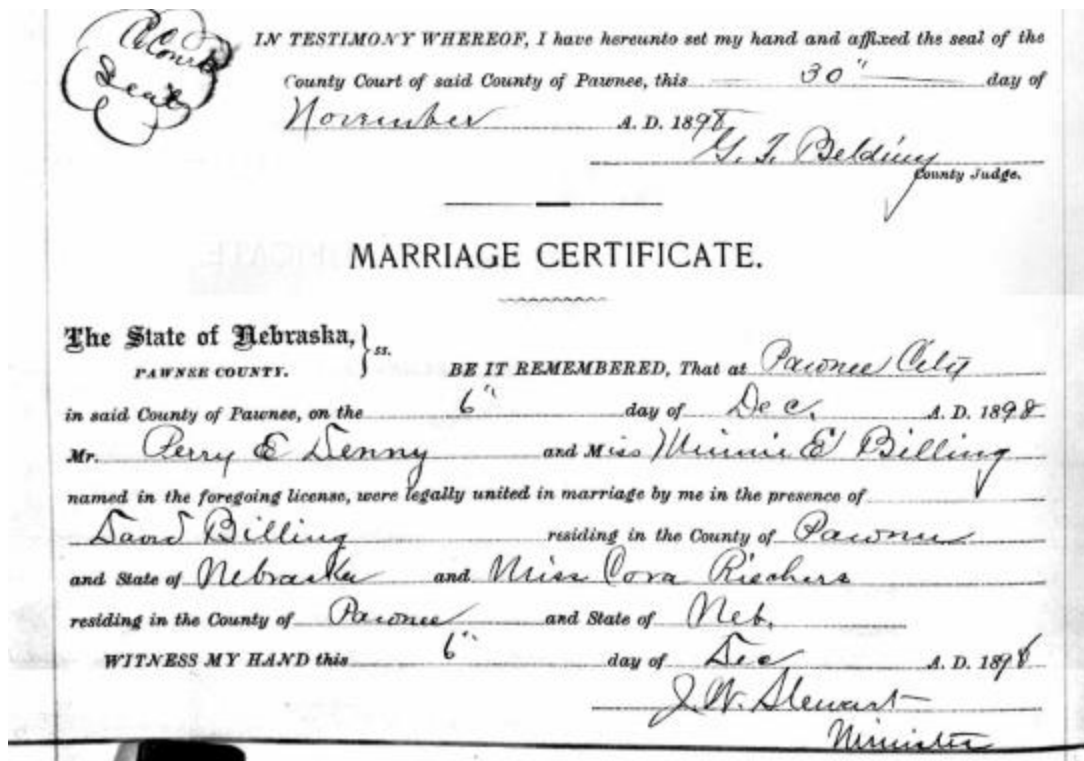 Co Court
Seal
IN TESTIMONY WHEREOF, I have hereunto set my hand and affixed the seal of the
County Court of said County of Pawnee, this 30" day of
November A. D. 1898
G. F. Belding
County Judge.
MARRIAGE CERTIFICATE.
The State of Nebraska, } ss.
PAWNEE COUNTY. BE IT REMEMBERED, That at Pawnee City
in said County of Pawnee, on the 6" day of Dec. A. D. 1898
Mr. Perry E Denny and Miss Minnie E Billing
named in the foregoing license, were legally united in marriage by me in the presence of
David Billing residing in the County of Pawnee
and State of Nebraska and Miss Cora Riechers
residing in the County of Pawnee and State of Neb.
WITNESS MY HAND this 6" day of Dec A. D. 1898
J. W. Stewart
Minister